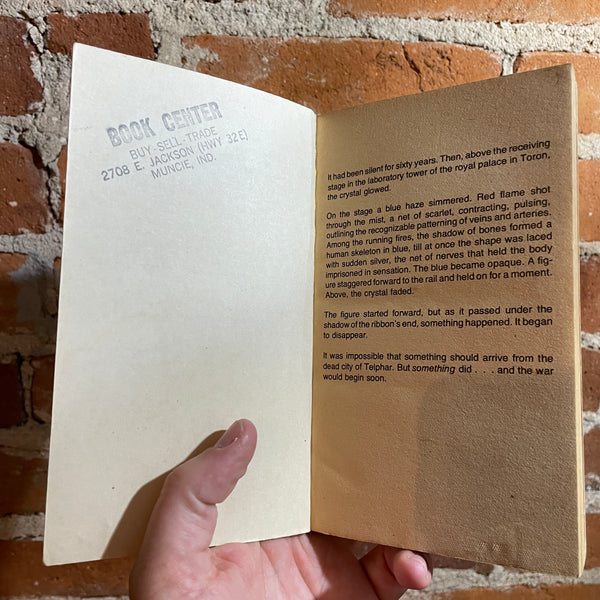 BOOK CENTER
BUY-SELL-TRADE
2708 E. JACKSON (HWY 32E)
MUNCIE, IND.
It had been silent for sixty years. Then, above the receiving
stage in the laboratory tower of the royal palace in Toron,
the crystal glowed.
On the stage a blue haze simmered. Red flame shot
through the mist, a net of scarlet, contracting, pulsing,
outlining the recognizable patterning of veins and arteries.
Among the running fires, the shadow of bones formed a
human skeleton in blue, till at once the shape was laced
with sudden silver, the net of nerves that held the body
imprisoned in sensation. The blue became opaque. A fig-
ure staggered forward to the rail and held on for a moment.
Above, the crystal faded.
The figure started forward, but as it passed under the
shadow of the ribbon's end, something happened. It began
to disappear.
It was impossible that something should arrive from the
dead city of Telphar. But something did . . . and the war
would begin soon.